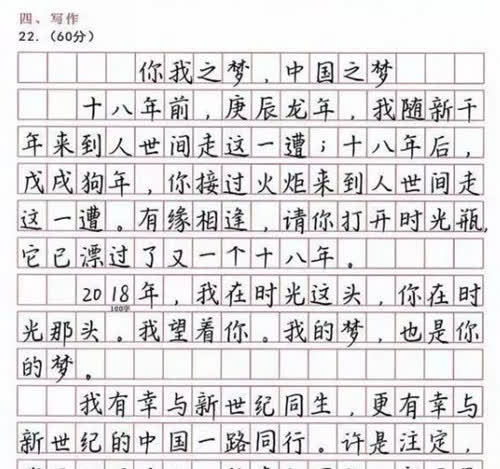 四、写作
22.（60分）
你我之梦，中国之梦
十八年前，庚辰龙年，我随新千
年来到人世间走这一遭；十八年后，
戊戌狗年，你接过火炬来到人世间走
这一遭。有缘相逢，请你打开时光瓶，
它已漂过了又一个十八年。
2018年，我在时光这头，你在时
100字
光那头。我望着你。我的梦，也是你
的梦。
我有幸与新世纪同生，更有幸与
新世纪的中国一路同行。许是注定，